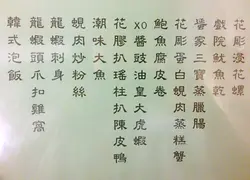 花彫浸花螺
戲院魷魚乾
醬家三寶蒸臘腸
花彫蛋白蜆肉蒸糕蟹
鮑魚腐皮卷
XO醬豉油皇大虎蝦
花膠扒瑤柱扒陳皮鴨
潮味大魚
蜆肉炒粉絲
龍蝦刺身
龍蝦頭爪扣雞窩
韓式泡飯